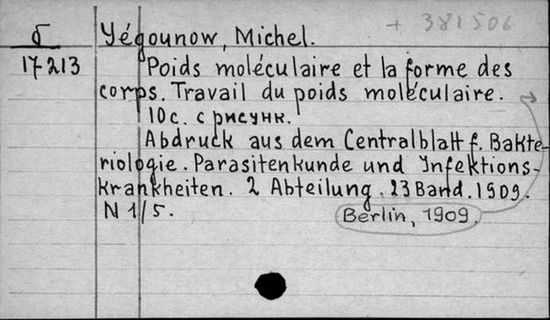 + 381506
б
17213
Yégounow, Michel.
Poids moléculaire et la forme des
corps. Travail du poids moléculaire.
10 с. с рисунк.
Abdruck aus dem Centralblatt f. Bakte-
riologie. Parasitenkunde und Infektions-
krankheiten. 2 Abteilung. 23 Band. 1909.
N 1/5.
Berlin, 1909.